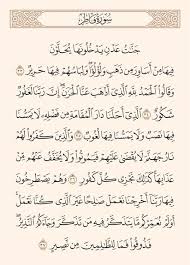 سُورَةُ فَاطِرٍ
جَنَّٰتُ عَدْنٍ يَدْخُلُونَهَا يُحَلَّوْنَ
فِيهَا مِنْ أَسَاوِرَ مِن ذَهَبٍ وَلُؤْلُؤًا وَلِبَاسُهُمْ فِيهَا حَرِيرٌ ٣٣
وَقَالُوا۟ ٱلْحَمْدُ لِلَّهِ ٱلَّذِىٓ أَذْهَبَ عَنَّا ٱلْحَزَنَ إِنَّ رَبَّنَا لَغَفُورٌ
شَكُورٌ ٣٤ ٱلَّذِىٓ أَحَلَّنَا دَارَ ٱلْمُقَامَةِ مِن فَضْلِهِۦ لَا يَمَسُّنَا
فِيهَا نَصَبٌ وَلَا يَمَسُّنَا فِيهَا لُغُوبٌ ٣٥ وَٱلَّذِينَ كَفَرُوا۟ لَهُمْ
نَارُ جَهَنَّمَ لَا يُقْضَىٰ عَلَيْهِمْ فَيَمُوتُوا۟ وَلَا يُخَفَّفُ عَنْهُم مِّنْ
عَذَابِهَا كَذَٰلِكَ نَجْزِى كُلَّ كَفُورٍ ٣٦ وَهُمْ يَصْطَرِخُونَ
فِيهَا رَبَّنَآ أَخْرِجْنَا نَعْمَلْ صَٰلِحًا غَيْرَ ٱلَّذِى كُنَّا نَعْمَلُ
أَوَلَمْ نُعَمِّرْكُم مَّا يَتَذَكَّرُ فِيهِ مَن تَذَكَّرَ وَجَآءَكُمُ ٱلنَّذِيرُ
فَذُوقُوا۟ فَمَا لِلظَّٰلِمِينَ مِن نَّصِيرٍ ٣٧